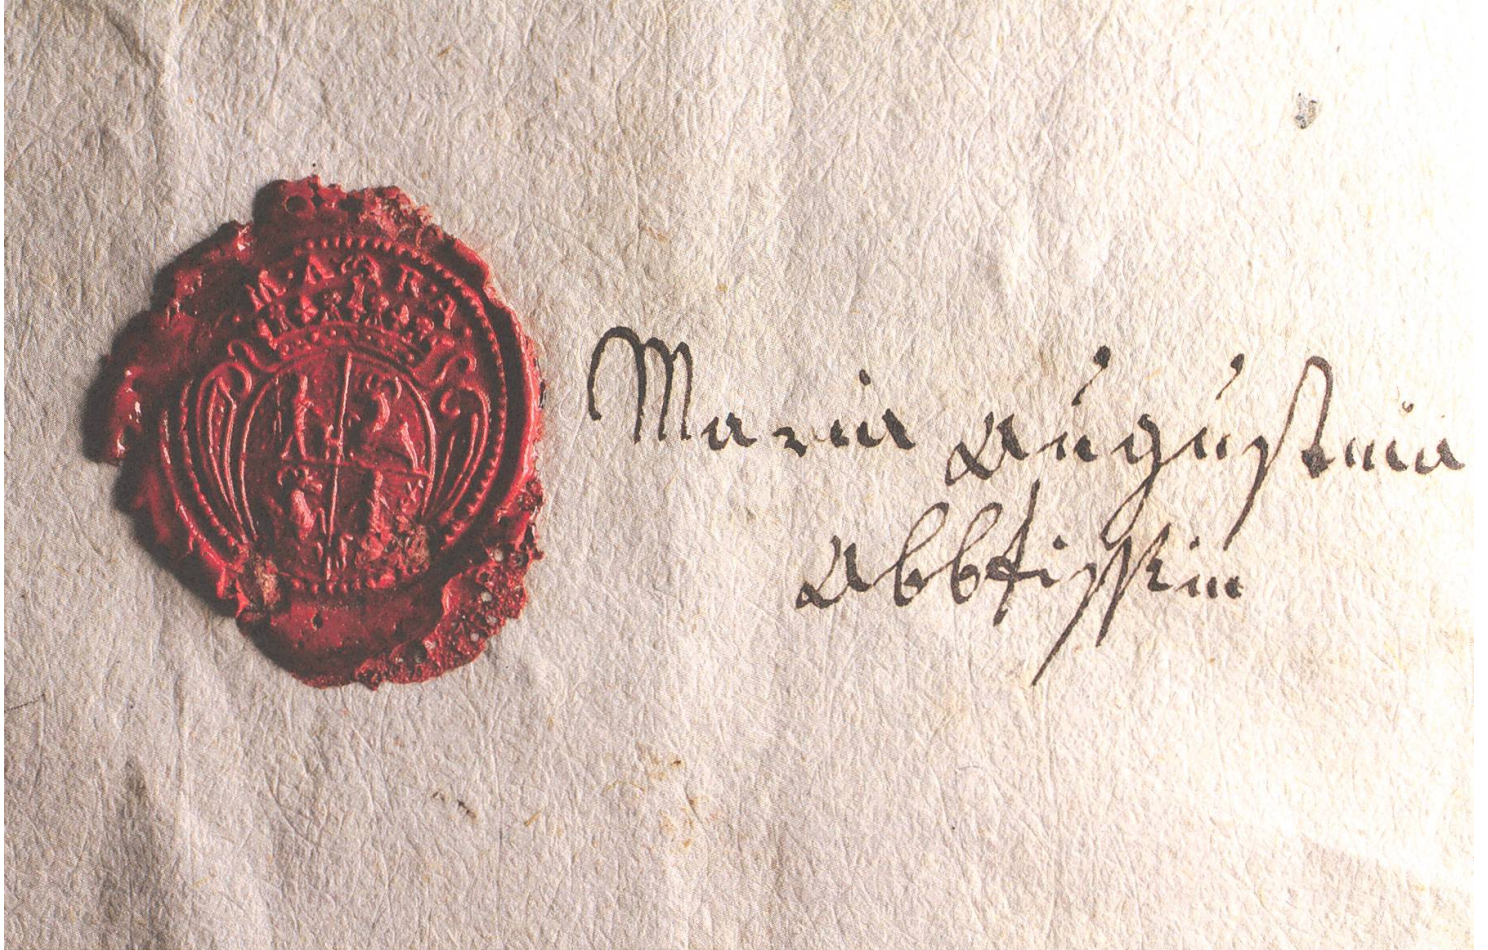 M·A·A·R·A·
Maria Augustina
Abbtissin